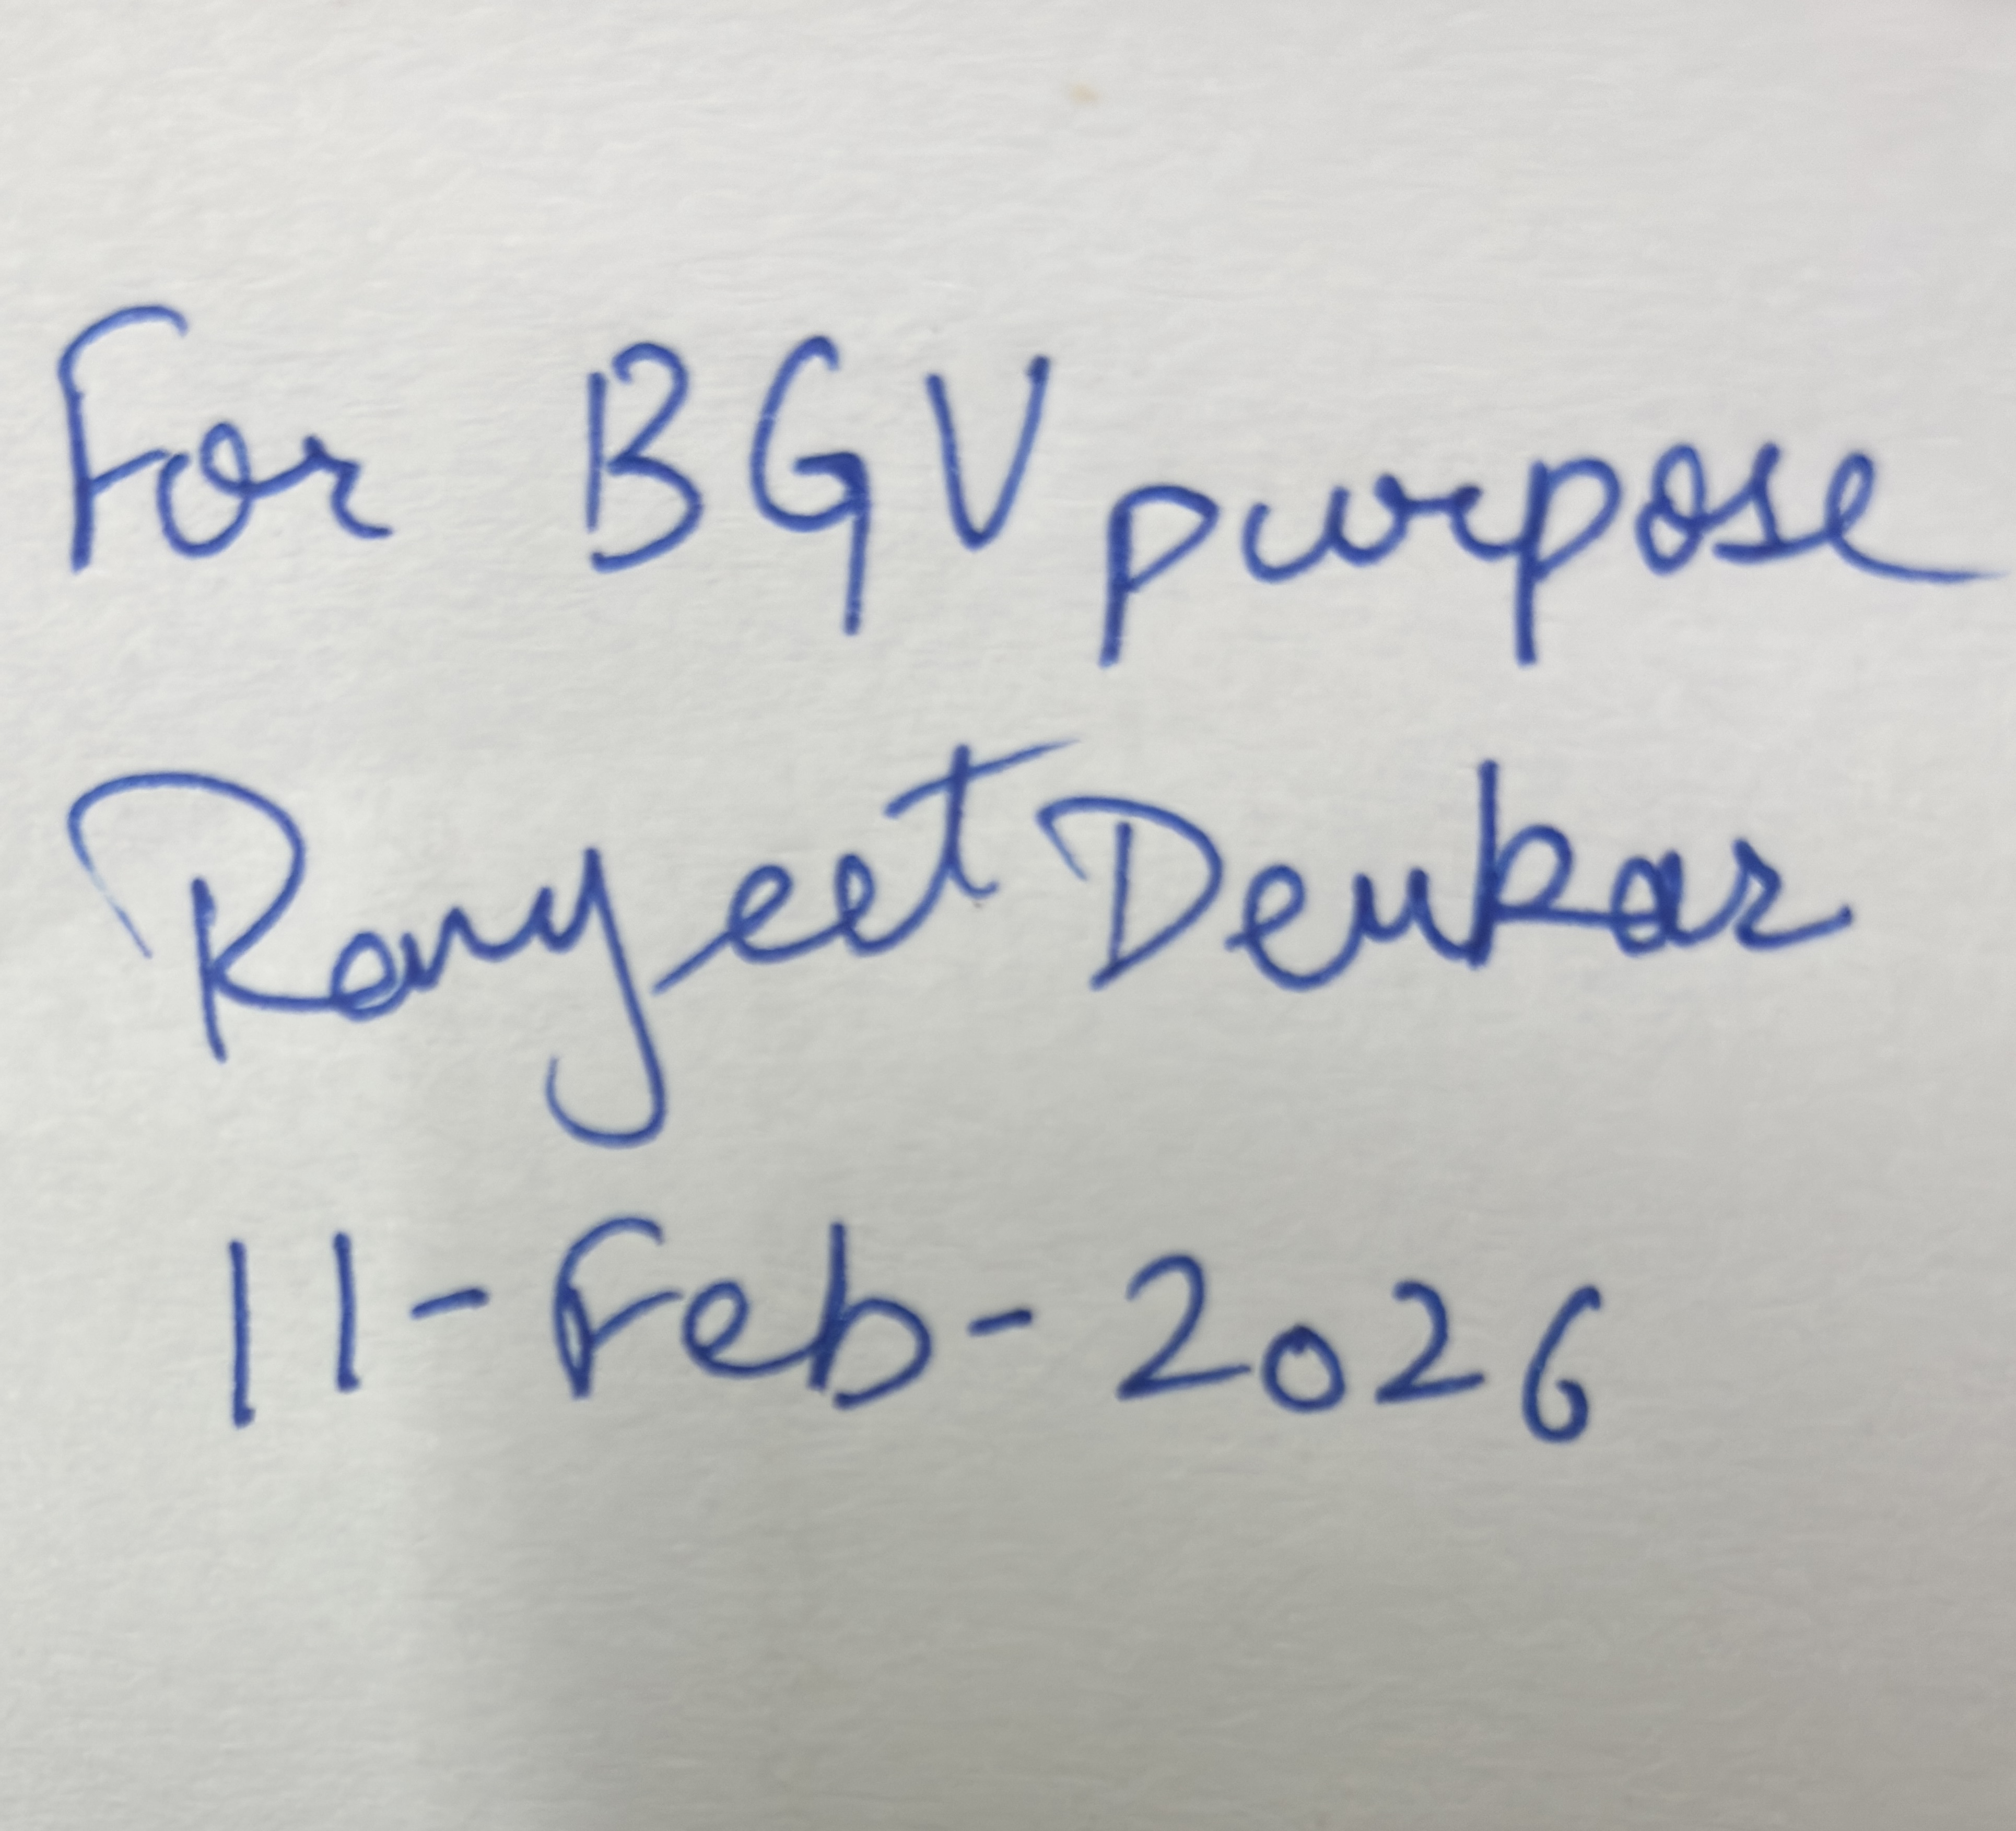 For BGV purpose
Ranjeet Deukar
11-Feb-2026